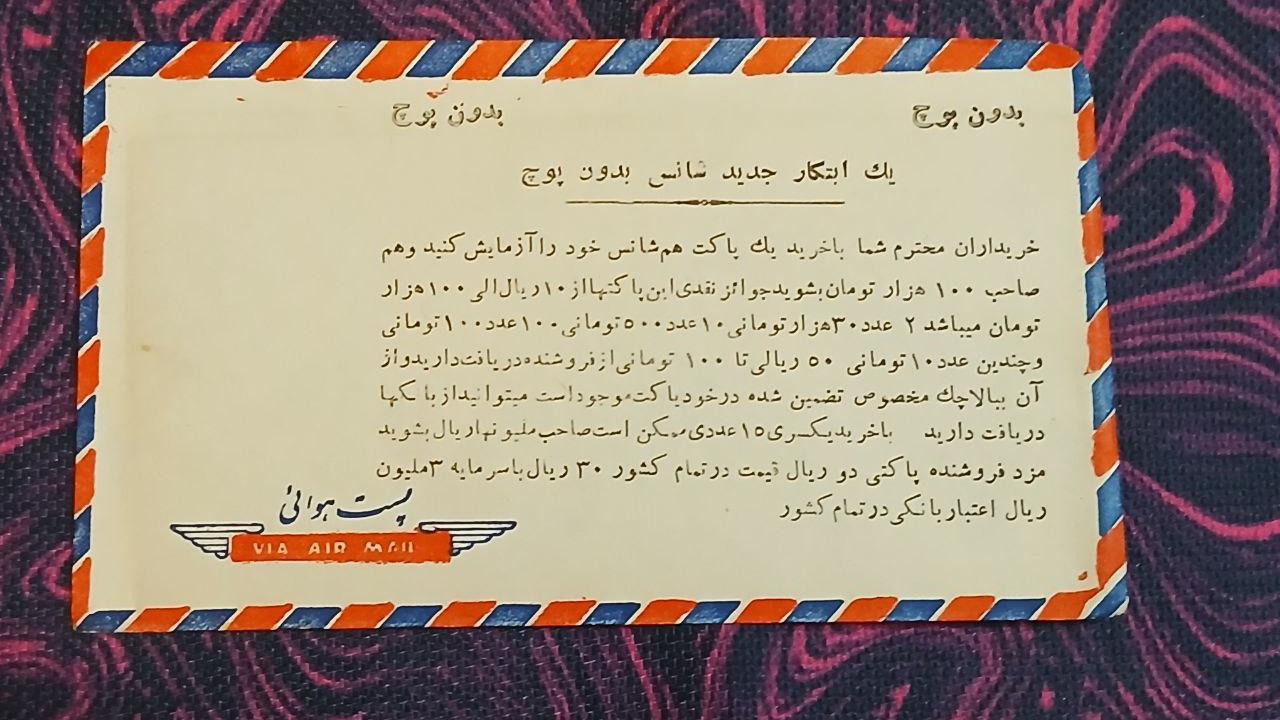 بدون پوچ
بدون پوچ
یك ابتكار جدید شانس بدون پوچ
خریداران محترم شما باخرید یك پاكت هم شانس خود را آزمایش كنید وهم
صاحب ۱۰۰ هزار تومان بشوید جوائز نقدی این پاكتها از ۱۰ ریال الی ۱۰۰ هزار
تومان میباشد ۲ عدد ۳۰ هزار تومانی ۱۰ عدد ۵۰۰ تومانی ۱۰۰ عدد ۱۰۰ تومانی
وچندین عدد ۱۰ تومانی ۵۰ ریالی تا ۱۰۰ تومانی از فروشنده دریافت دارید واز
آن ببالا چك مخصوص تضمین شده در خود پاكت موجود است میتوانید از بانكها
دریافت دارید باخرید یكسری ۱۵ عددی ممكن است صاحب ملیونها ریال بشوید
مزد فروشنده پاكتی دو ریال قیمت در تمام كشور ۳۰ ریال با سرمایه ۳ ملیون
ریال اعتبار بانكی در تمام كشور
پست هوائی
VIA AIR MAIL